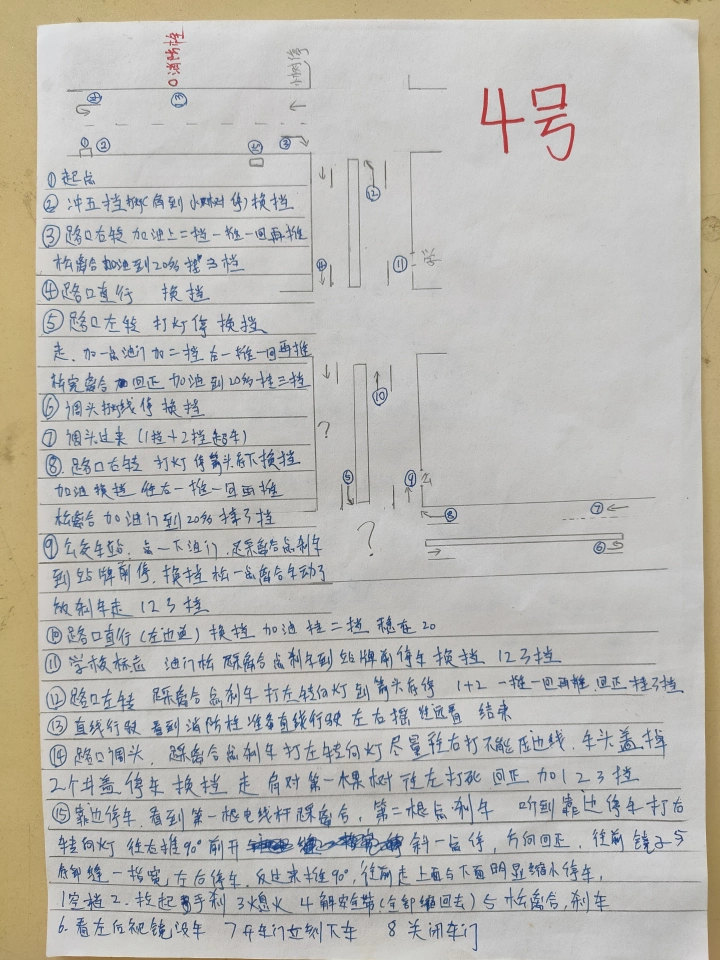 消防栓
小树停
4号
①起点
②冲五挡 (肩到小树对停) 换挡
③路口右转 加油上二挡一推一回再推
松离合加油到20码挂3挡
④路口直行 换挡
⑤路口左转 打灯停 换挡
走、加一点油门加二挡 左一推一回再推
松完离合 回正 加油到20码挂三挡
⑥调头 线停 换挡
⑦调头过来 (1挡+2挡起车)
⑧路口右转 打灯停箭头右下换挡
加油换挡 往右一推一回再推
松离合加油门到20码挂3挡
⑨公交车站、点一下油门、踩离合点刹车
到站牌前停、换挡 松一点离合车动了
放刹车走 123挡
⑩路口直行(左边道) 换挡 加油挂二挡 稳在20
⑪学校标志 油门松 踩离合点刹车到站牌前停车换挡 123挡
⑫路口左转 踩离合点刹车打左转向灯到箭头右停 1+2 一推一回再推、回正挂3挡
⑬直线行驶 看到消防栓准备直线行驶 左右摇 往远看 结束
⑭路口调头、踩离合点刹车打左转向灯尽量往右打不能压边线、车头盖掉
2个井盖停车 换挡 走 肩对第一棵树往左打死 回正 加123挡
⑮靠边停车、看到第一根电线杆踩离合、第二根点刹车 听到靠边停车打右
转向灯 往右推90°前开 斜一点停、方向回正、往前 镜子与
缝一指宽、左右停车、反过来推90°、往前走上面与下面明显缩小停车、
1空挡 2、拉起手刹 3熄火 4解安全带(全部缩回去) 5松离合、刹车
6、看左后视镜没车 7开车门立刻下车 8关闭车门
⑭
⑬
①
②
⑮
③
⑫
④
⑪
学
⑩
?
⑤
⑨
公
⑧
⑦
⑥
?